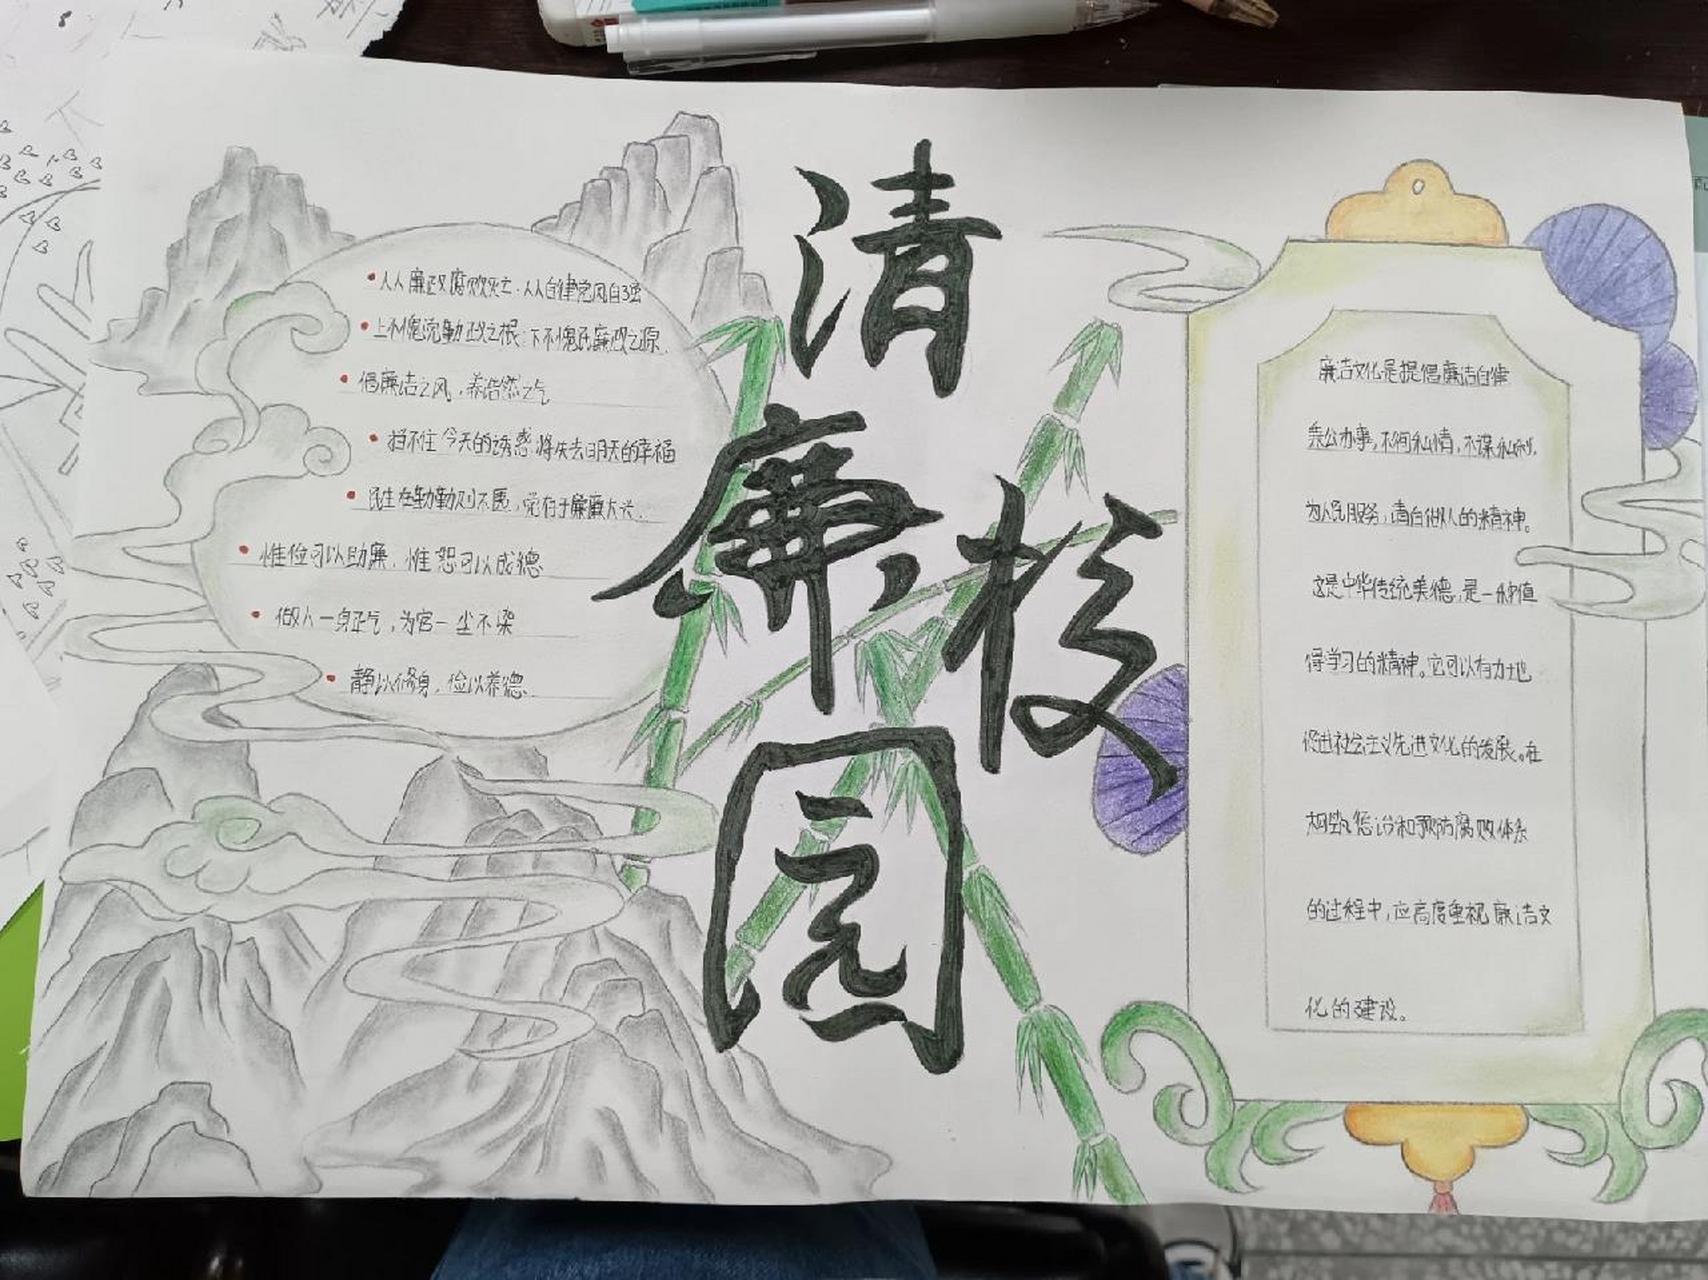 清廉校园
人人廉政腐败灭亡·人人自律党风自强
上不愧党勤政之根:下不愧民廉政之源.
倡廉洁之风,养浩然之气
挡不住今天的诱惑将失去明天的幸福
民生在勤勤则不匮,党存于廉廉大兴.
惟俭可以助廉,惟恕可以成德
做人一身正气,为官一尘不染
静以修身,俭以养德.
廉洁文化是提倡廉洁自律
秉公办事,不徇私情,不谋私利,
为人民服务,清白做人的精神。
这是中华传统美德,是一种值
得学习的精神。它可以有力地
促进社会主义先进文化的发展。在
惩治和预防腐败体系
的过程中,应高度重视廉洁文
化的建设。